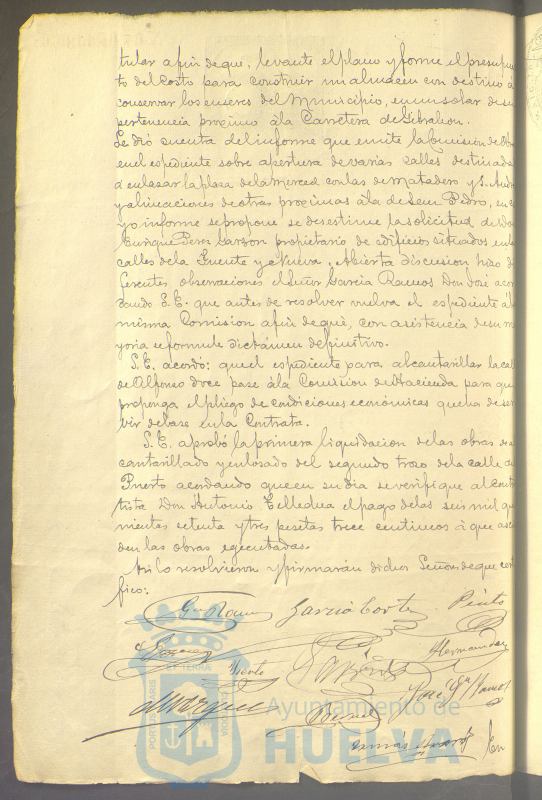 tular a fin de que, levante el plano y forme el presupues
to del costo para construir un almacen con destino á
conservar los enseres del Municipio, en un solar de su
pertenencia proximo á la Carretera de Gibraleon.
Se dió cuenta del informe que emite la Comision de Obras
en el espediente sobre apertura de varias calles destinadas
á enlazar la plaza de la Merced con las de Matadero y S. Andres
y alineaciones de otras proximas á la de San Pedro, en cu
yo informe se propone se desestime la solicitud de Don
Enrique Perez Garzon propietario de edificios situados en las
calles de la Fuente y Nueva. Abierta discusion hizo di
ferentes observaciones el Señor Garcia Ramos Don José acor
dando S.E. que antes de resolver vuelva el espediente á la
misma Comision a fin de que, con asistencia de su ma
yoria se formule dictámen definitivo.
S.E. acordó: que el espediente para alcantarillar la calle
de Alfonso doce pase á la Comision de Hacienda para que
proponga el pliego de condiciones económicas que ha de ser
vir de base en la Contrata.
S.E. aprobó la primera liquidacion de las obras de al
cantarillado y enlosado del segundo trozo de la calle del
Puerto acordando que en su dia se verifique al contra
tista Don Antonio el pago de las seis mil qui
nientas setenta y tres pesetas trece centimos á que ascien
den las obras ejecutadas.
Asi lo resolvieron y firmarán dichos Señores de que certi
fico:
Garcia Cortes Pinto
Hernandez
José Ga Ramos
En
PORTUS MARIS ET TERRÆ CUSTODIA
Ayuntamiento de
HUELVA